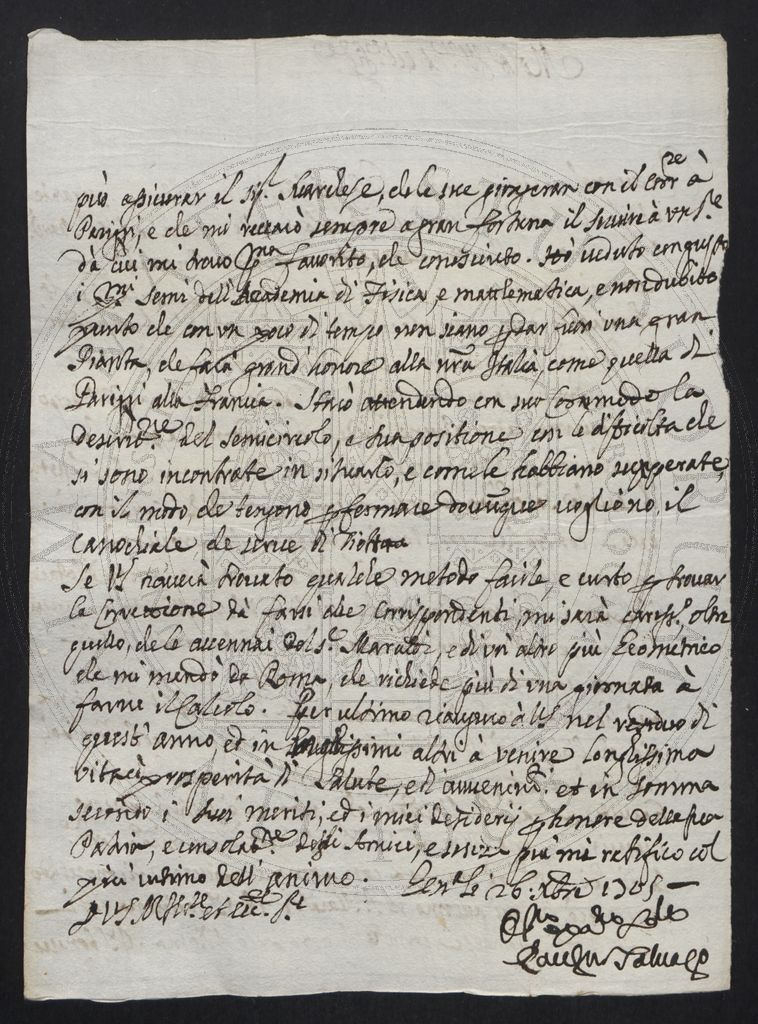 può assicurar il Sig.r Marchese, che le sue prospereran con il Cor.re à
Pariggi, e che mi recherò sempre a gran fortuna il servir à V.S.
dà cui mi trovo p.ma favorito, che conosciuto. Hò veduto con gusto
i p.mi semi dell'Accademia di Fisica, e matthematica, e non dubito
punto che con un poco di tempo non siano p dar fuori una gran
Pianta, che farà grand'honore alla nr̃a Italia, come quella di
Pariggi alla Francia. Starò attendendo con suo Commodo la
descritt.ne del semicircolo, e sua positione con le difficoltà che
si sono incontrate in situarlo, e come le habbiano supperate,
con il modo, che tengono p fermare dovunque vogliono, il
Canochiale che serve di
Se V.S. haverà trovato qualche metodo facile, e curto p trovar
la Correttione dà farsi alle Corrispondenti, mi sarà cariss.o oltre
quello, che le accennai del S.r Maraldi, e di un altro più Geometrico
che mi mandò da Roma, che richiede più di una giornata à
farne il Calcolo. Per ultimo riauguro à V.S. nel residuo di
quest'anno, ed in moltissimi altri à venire longhissima
vita, prosperità di salute, e di avvenim.ti et in somma
secondo i suoi meriti, ed i miei desiderij p honore della sua
Patria, e consolat.ne degli Amici, e senza più mi ratifico col
più intimo dell'animo. Gen.a li 26 Xbre 1705
D V.S. M Ill.re et Ecc.ma
Paolo Salvago